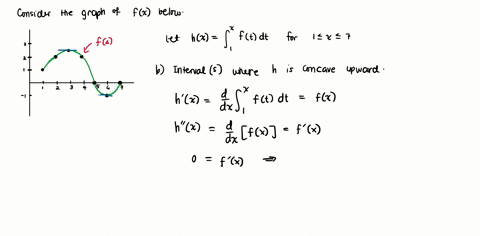 Consider the graph of f(x) below.
Let h(x) = ∫₁ˣ f(t) dt for 1 ≤ x ≤ 7
f(x)
3
2
1
-1
1 2 3 4 5 6 7
b) Interval(s) where h is concave upward.
h'(x) = d/dx ∫₁ˣ f(t) dt = f(x)
h''(x) = d/dx [f(x)] = f'(x)
0 = f'(x) ⇒